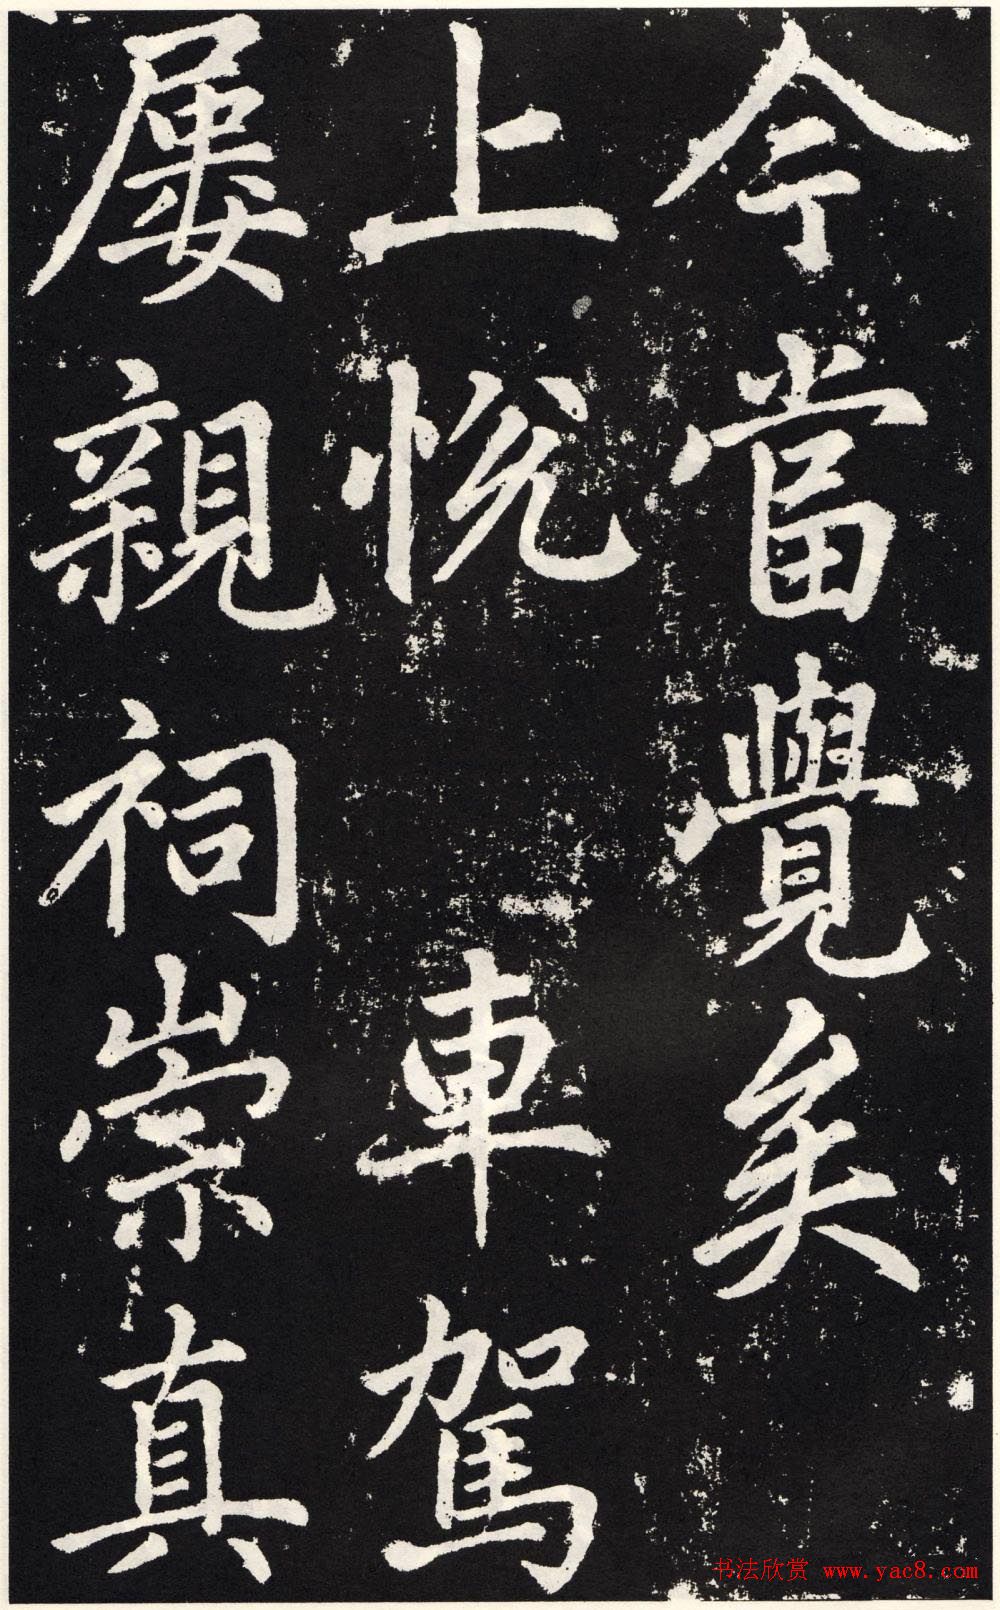 今當覺矣
上悅 車駕
屢親祠崇真
书法欣赏 www.yac8.com